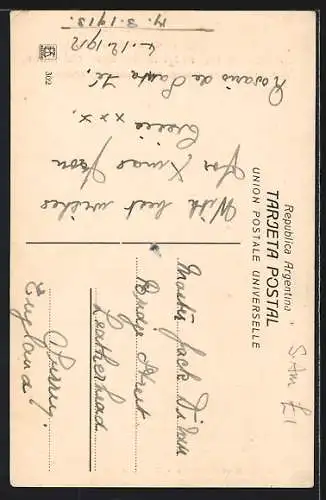 Republica Argentina
TARJETA POSTAL
UNION POSTALE UNIVERSELLE
With best wishes
for Xmas from
Cecie xxx.
Rosario de Santa Fé,
4.12.1912
3.1913.
302
Master Jack
Bridge Street
Leatherhead
Surrey.
England
S. Am £1